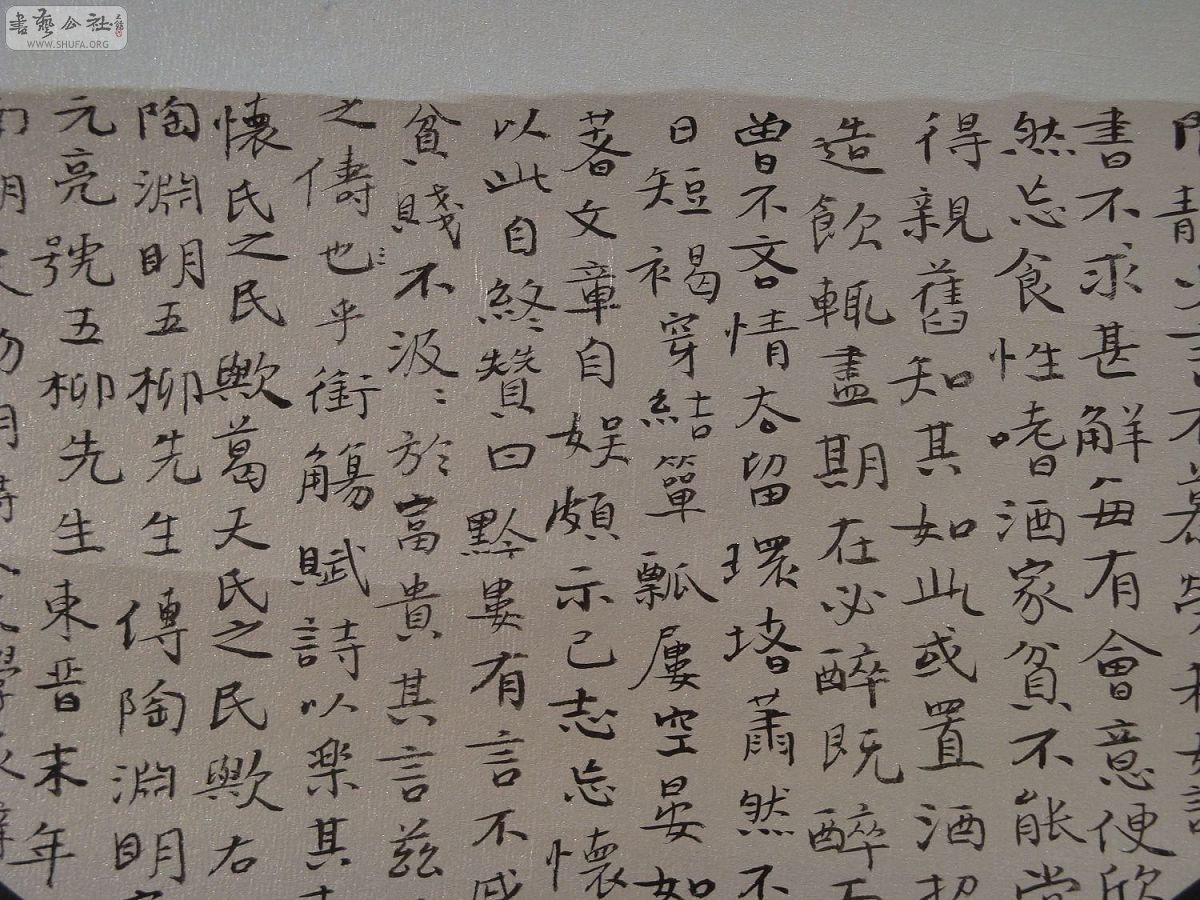 少言不慕榮利好讀
書不求甚解每有會意便欣
然忘食性嗜酒家貧不能常
得親舊知其如此或置酒招
造飲輒盡期在必醉既醉而
曾不吝情去留環堵蕭然不
日短褐穿結簞瓢屢空晏如
著文章自娛頗示己志忘懷
以此自終〻贊曰黔婁有言不戚
貧賤不汲〻於富貴其言茲
之儔也乎銜觴賦詩以樂其志
懷氏之民歟葛天氏之民歟右
陶淵明五柳先生傳陶淵明
元亮號五柳先生東晉末年
南朝宋初期詩人文學家辭
書藝公社
WWW.SHUFA.ORG